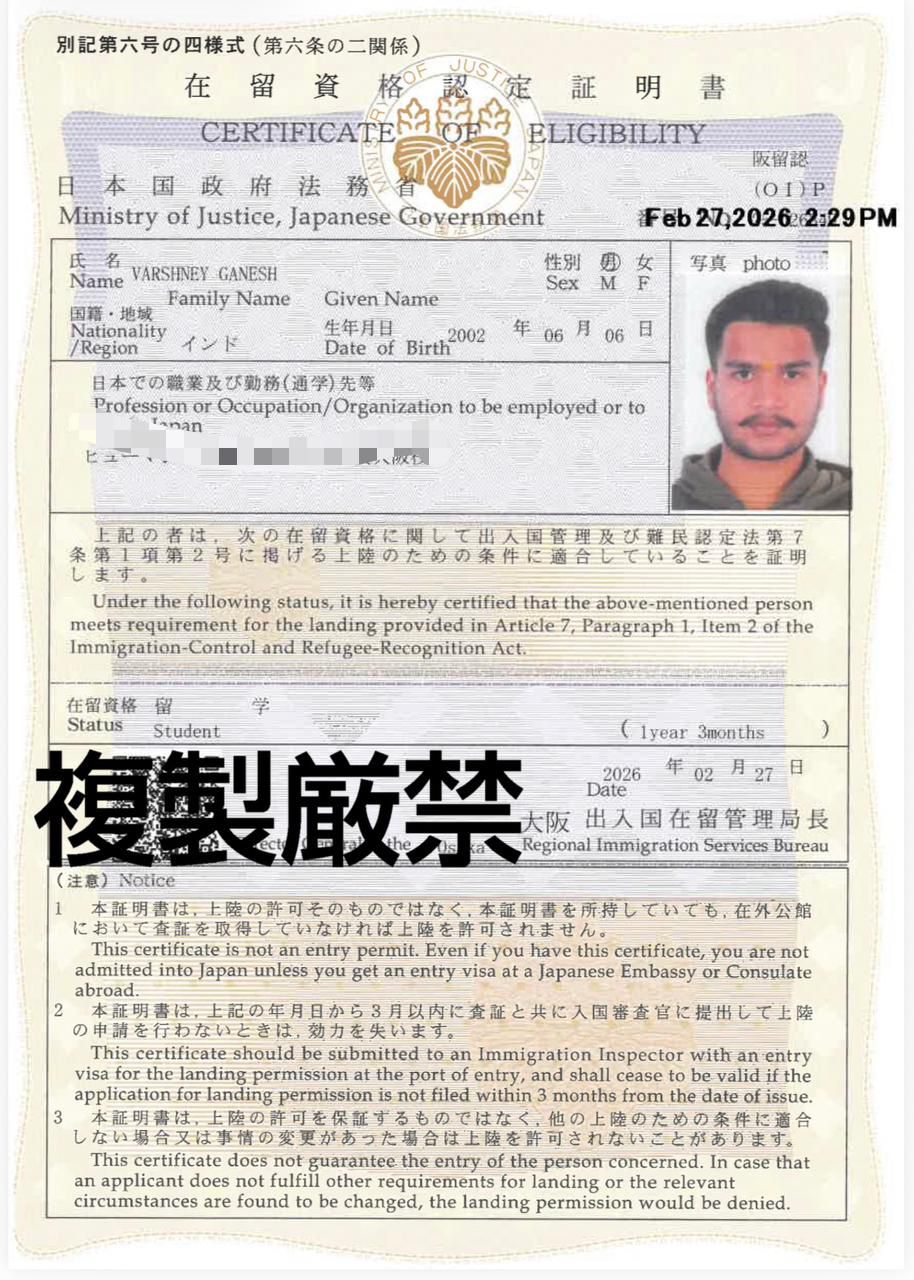 別記第六号の四様式(第六条の二関係)
在留資格認定証明書
CERTIFICATE OF ELIGIBILITY
MINISTRY OF JUSTICE JAPAN
阪留認
日本国政府法務省
(OI)P
Ministry of Justice, Japanese Government
Feb 27,2026 2:29 PM
氏名
Name VARSHNEY GANESH
Family Name Given Name
性別 男 女
Sex M F
写真 photo
国籍・地域
Nationality
/Region インド
生年月日
Date of Birth 2002 年 06 月 06 日
日本での職業及び勤務(通学)先等
Profession or Occupation/Organization to be employed or to
Japan
上記の者は、次の在留資格に関して出入国管理及び難民認定法第7
条第1項第2号に掲げる上陸のための条件に適合していることを証明
します。
Under the following status, it is hereby certified that the above-mentioned person
meets requirement for the landing provided in Article 7, Paragraph 1, Item 2 of the
Immigration-Control and Refugee-Recognition Act.
在留資格 留学
Status Student
( 1year 3months )
複製厳禁
2026 年 02 月 27 日
Date
大阪 出入国在留管理局長
the Osaka Regional Immigration Services Bureau
(注意) Notice
1 本証明書は、上陸の許可そのものではなく、本証明書を所持していても、在外公館
において査証を取得していなければ上陸を許可されません。
This certificate is not an entry permit. Even if you have this certificate, you are not
admitted into Japan unless you get an entry visa at a Japanese Embassy or Consulate
abroad.
2 本証明書は、上記の年月日から3月以内に査証と共に入国審査官に提出して上陸
の申請を行わないときは、効力を失います。
This certificate should be submitted to an Immigration Inspector with an entry
visa for the landing permission at the port of entry, and shall cease to be valid if the
application for landing permission is not filed within 3 months from the date of issue.
3 本証明書は、上陸の許可を保証するものではなく、他の上陸のための条件に適合
しない場合又は事情の変更があった場合は上陸を許可されないことがあります。
This certificate does not guarantee the entry of the person concerned. In case that
an applicant does not fulfill other requirements for landing or the relevant
circumstances are found to be changed, the landing permission would be denied.